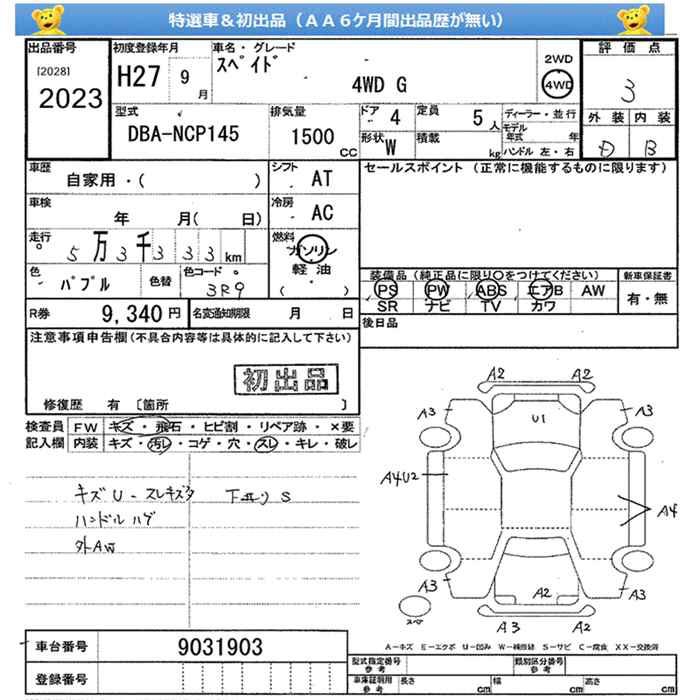 特選車＆初出品（ＡＡ６ケ月間出品歴が無い）
出品番号 初度登録年月 車名・グレード 評価点
[2028] H27 9月 スペイド 2WD
2023 4WD G 4WD 3
型式 排気量 ドア 4 定員 5人 ディーラー・並行 外装 内装
DBA-NCP145 1500CC 形状 W 積載 kg モデル年式 年 D B
ハンドル 左・右
車歴 シフト セールスポイント（正常に機能するものに限ります）
自家用・( ) AT
車検 冷房
年 月( 日) AC
走行 燃料
5万3千333km ガソリン
色 色替 色コード 軽油
パプル 3R9 ( )
装備品（純正品に限り〇をつけてください） 新車保証書
PS PW ABS エアB AW 有・無
SR ナビ TV カワ
R券 9,340円 名変通知期限 月 日 後日品
注意事項申告欄（不具合内容等は具体的に記入して下さい）
初出品
修復歴 有 〔箇所 〕
検査員 FW キズ・飛石・ヒビ割・リペア跡・×要
記入欄 内装 キズ・汚レ・コゲ・穴・スレ・キレ・破レ
キズU-スレキズタ 下廻り S
ハンドルハゲ
外AW
A2 A2
A3 U1 A3
A4U2 A4
A3 A2 A3
スペア A3 A2
A－キズ E－エクボ U－凹み W－補修跡 S－サビ C－腐食 XX－交換済
車台番号 9031903
登録番号
型式指定番号 参考 類別区分番号 参考
車庫証明用 参考 長さ cm 幅 cm 高さ cm